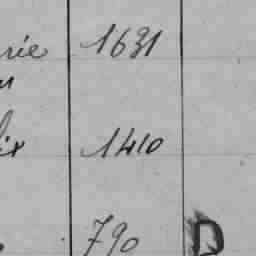 rie 1631
lix 1410
790 D